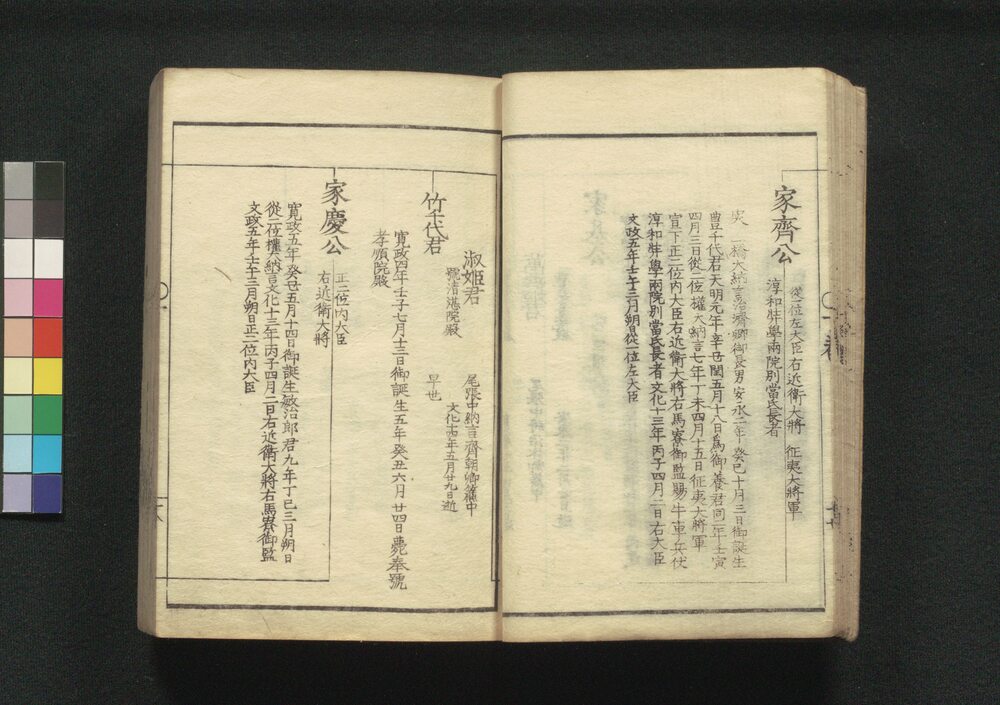 家齊公
從一位左大臣右近衞大將 征夷大將軍
淳和弉學兩院別當氏長者
実一橋大納言治濟卿御長男安永二年癸巳十月三日御誕生
豊千代君天明元年辛丑閏五月十八日爲御養君同二年壬寅
四月三日從二位權大納言七年丁未四月十五日征夷大將軍
宣下正二位内大臣右近衞大將右馬寮御監賜牛車兵伏
淳和弉學兩院別當氏長者文化十三年丙子四月二日右大臣
文政五年壬午三月朔日從一位左大臣
淑姫君
號清湛院殿
尾張中納言齊朝卿簾中
文化十四年五月廿九日逝
竹千代君
早世
寛政四年壬子七月十三日御誕生五年癸丑六月廿四日薨奉號
孝順院殿
家慶公
正二位内大臣
右近衞大將
寛政五年癸丑五月十四日御誕生敏治郎君九年丁巳三月朔日
從二位權大納言文化十三年丙子四月二日右近衞大將右馬寮御監
文政五年壬午三月朔日正二位内大臣